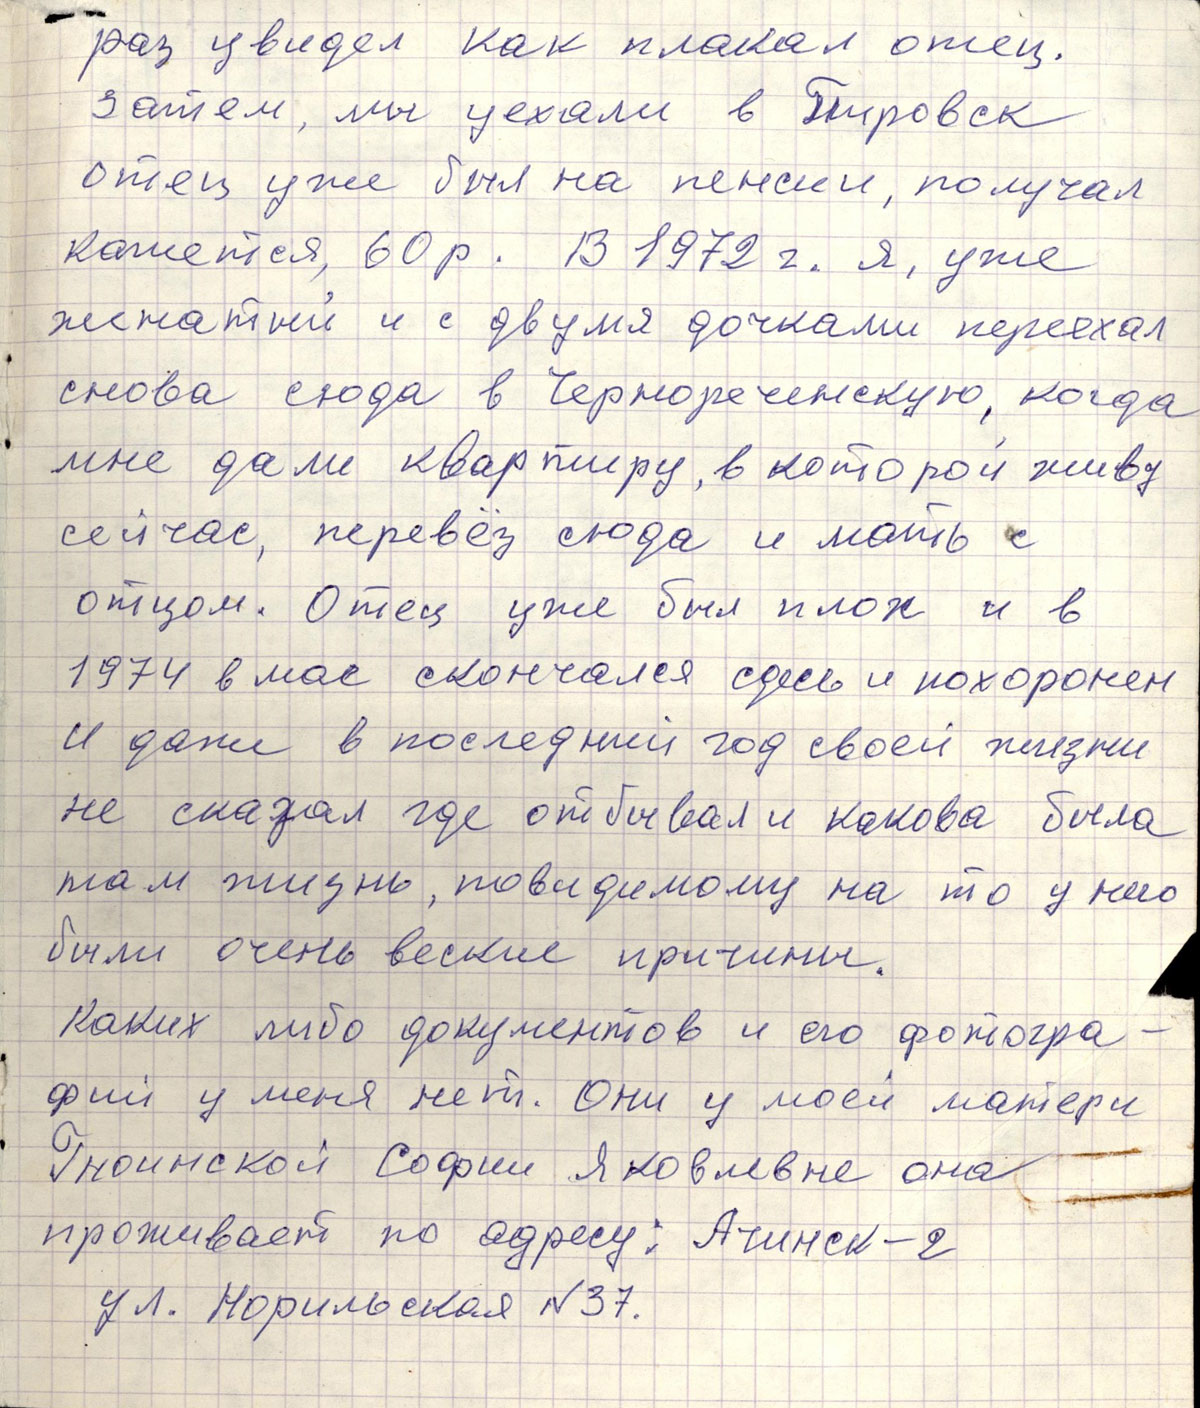 раз увидел как плакал отец.
Затем, мы уехали в Пировск
отец уже был на пенсии, получал
кажется, 60 р. В 1972 г. я, уже
женатый и с двумя дочками переехал
снова сюда в Чернореченскую, когда
мне дали квартиру, в которой живу
сейчас, перевёз сюда и мать с
отцом. Отец уже был плох и в
1974 в мае скончался сдесь и похоронен
И даже в последний год своей жизни
не сказал где отбывал и какова была
там жизнь, повидимому на то у него
были очень веские причины.
Каких либо документов и его фотогра-
фий у меня нет. Они у моей матери
Гноинской Софии Яковлевне она
проживает по адресу: Ачинск-2
ул. Норильская №37.